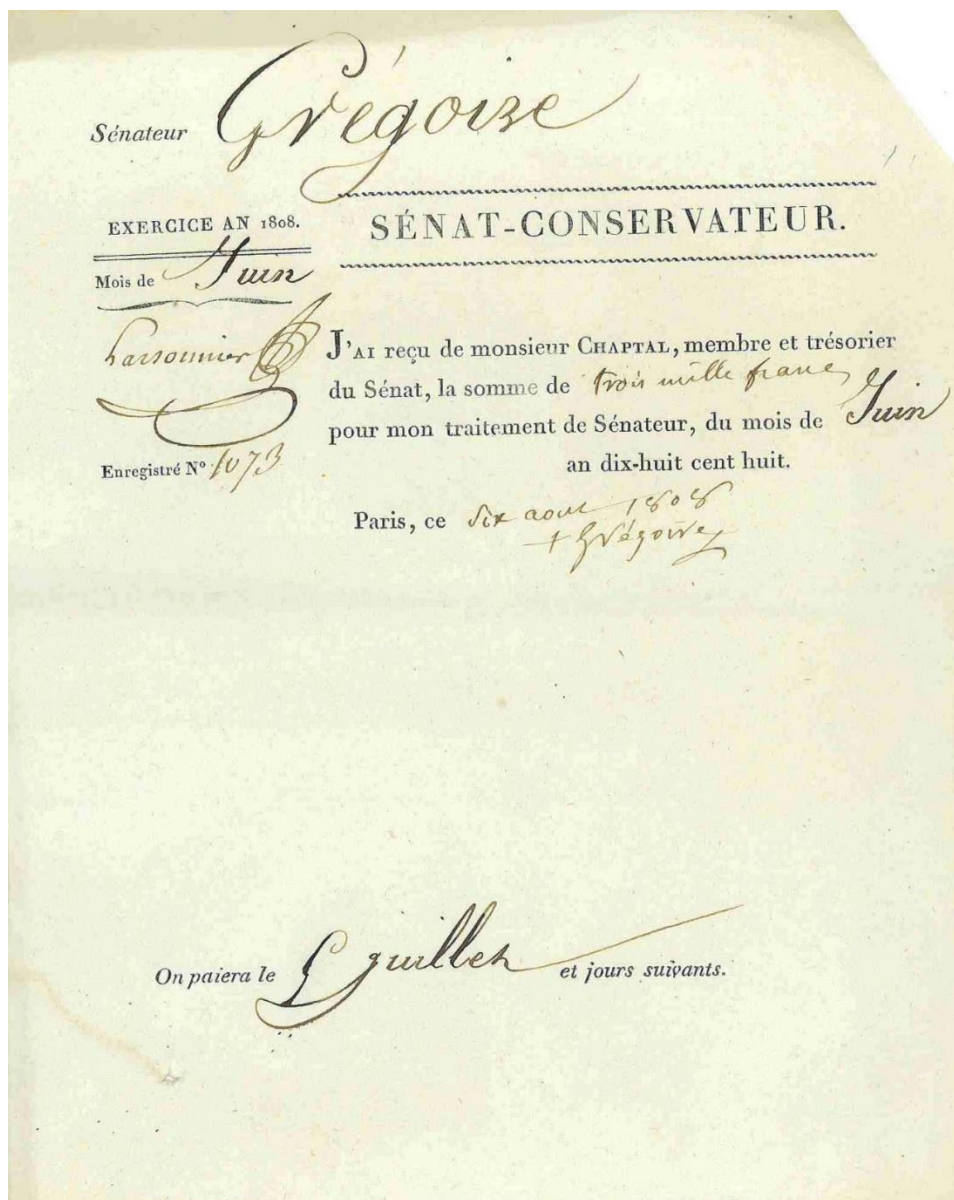 Sénateur Grégoire
EXERCICE AN 1808.
Mois de Juin
Enregistré N° 1073
SÉNAT-CONSERVATEUR.
J'AI reçu de monsieur CHAPTAL, membre et trésorier
du Sénat, la somme de trois mille francs
pour mon traitement de Sénateur, du mois de Juin
an dix-huit cent huit.
Paris, ce six aout 1808
+ Grégoire
On paiera le juillet et jours suivants.